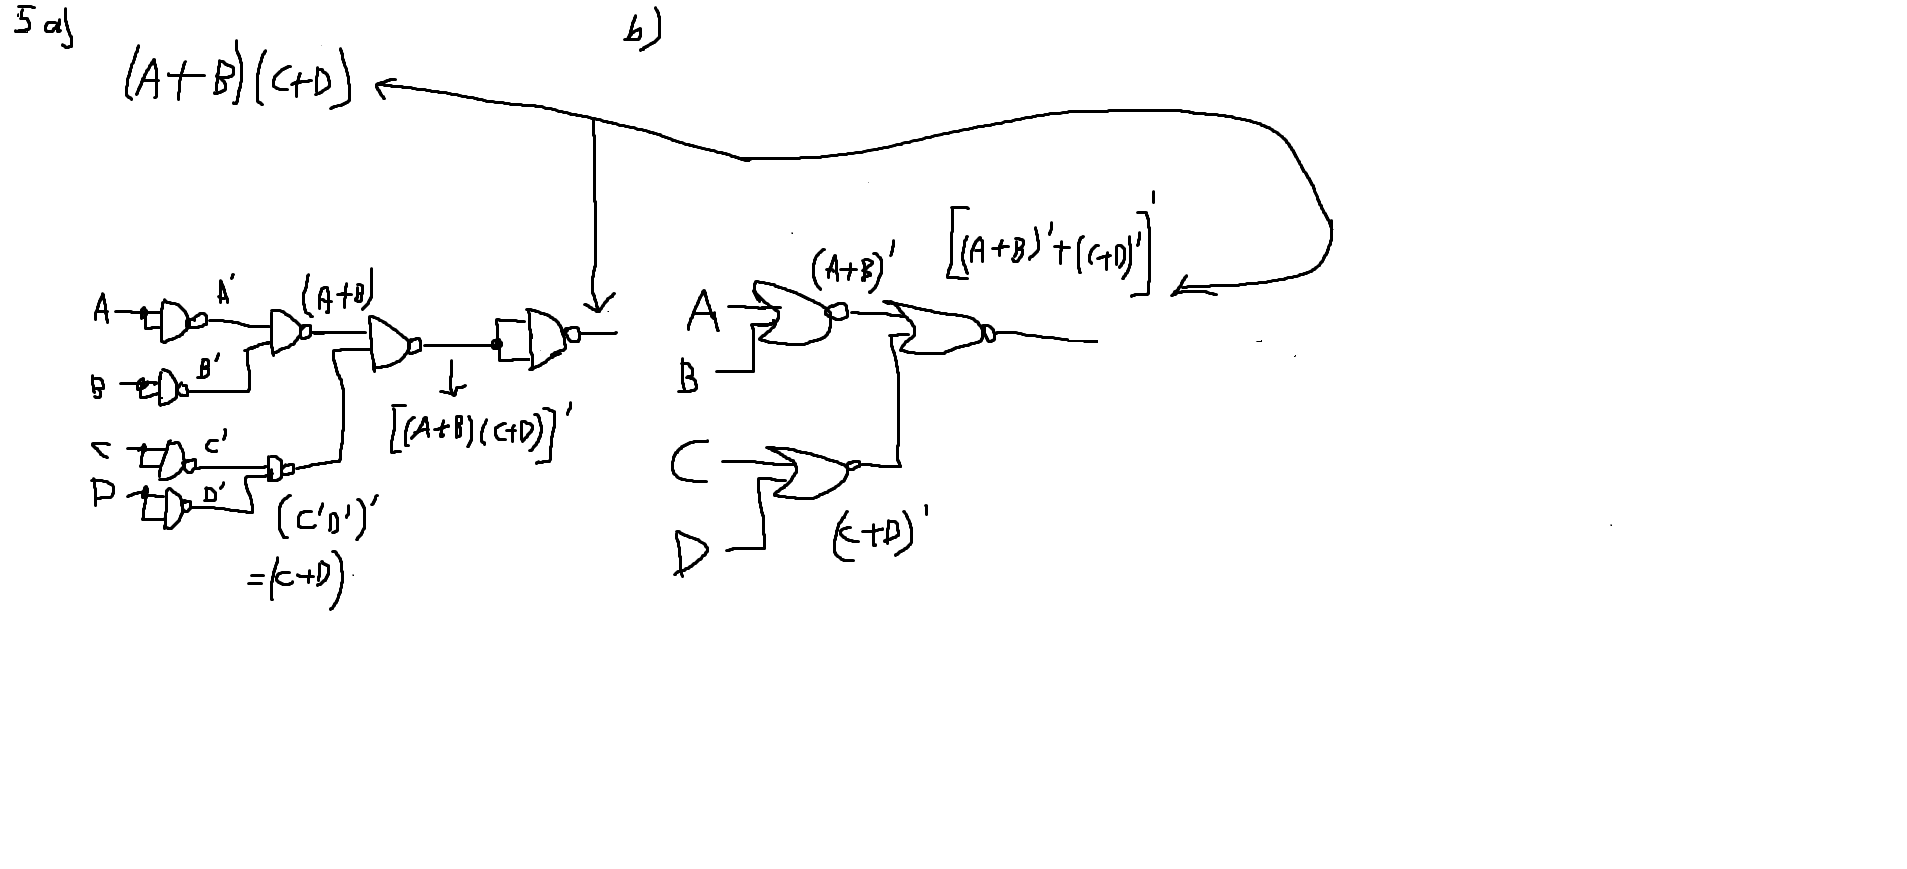 5 a)
(A+B)(C+D)
A
A'
(A+B)
B
B'
C
C'
D
D'
(C'D')'
=(C+D)
[(A+B)(C+D)]'
b)
A
B
(A+B)'
[(A+B)'+(C+D)']'
C
D
(C+D)'